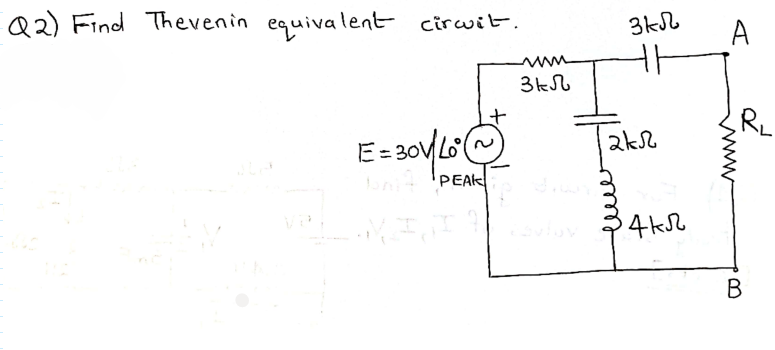 Q2) Find Thevenin equivalent circuit.
3kΩ
A
3kΩ
+
RL
E = 30V∠0°
2kΩ
−
PEAK
4kΩ
B